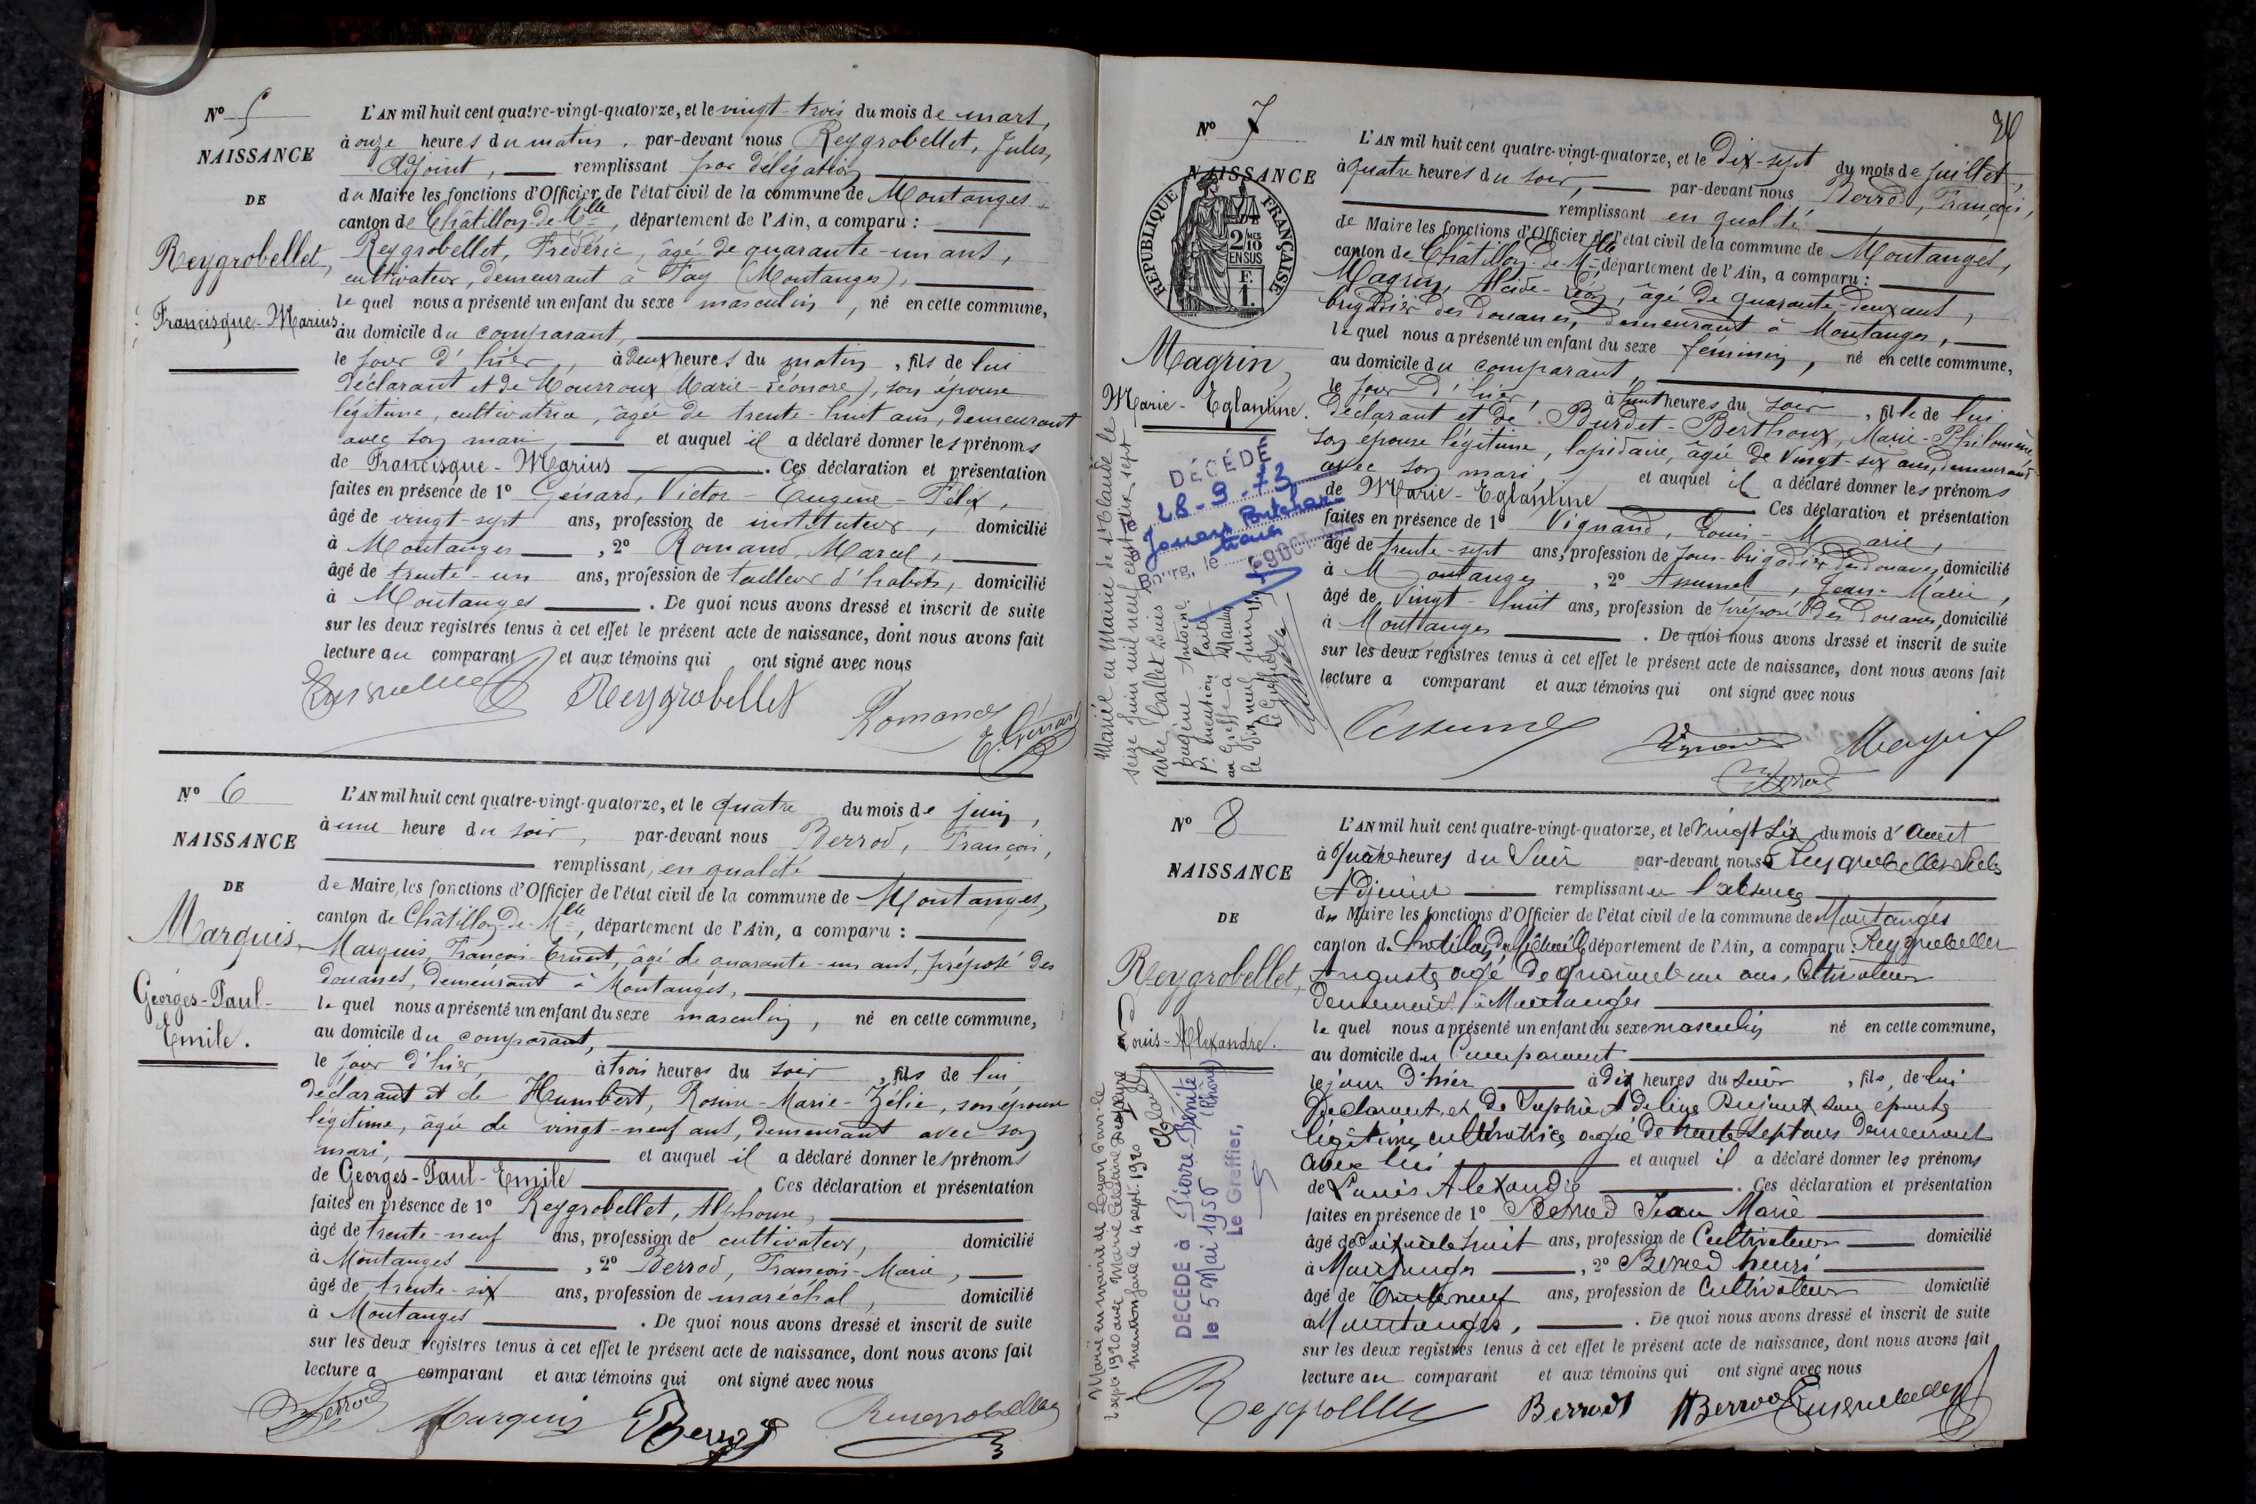 Nº 5
NAISSANCE
DE
Reygrobellet,
Francisque-Marius
L'AN mil huit cent quatre-vingt-quatorze, et le vingt-trois du mois de mars,
à onze heures du matin, par-devant nous Reygrobellet, Jules,
Adjoint, remplissant par délégation
du Maire les fonctions d'Officier de l'état civil de la commune de Montanges,
canton de Châtillon-de-Mlle, département de l'Ain, a comparu :
Reygrobellet, Frédéric, âgé de quarante-un ans,
cultivateur, demeurant à Fay (Montanges),
le quel nous a présenté un enfant du sexe masculin, né en cette commune,
au domicile du comparant,
le jour d'hier, à deux heures du matin, fils de lui
déclarant et de Mourroux Marie-Léonore), son épouse
légitime, cultivatrice, âgée de trente-huit ans, demeurant
avec son mari, et auquel il a déclaré donner les prénoms
de Francisque-Marius. Ces déclaration et présentation
faites en présence de 1º Génard, Victor-Eugène-Félix,
âgé de vingt-sept ans, profession de instituteur, domicilié
à Montanges, 2º Romand, Marcel,
âgé de trente-un ans, profession de tailleur d'habits, domicilié
à Montanges. De quoi nous avons dressé et inscrit de suite
sur les deux registres tenus à cet effet le présent acte de naissance, dont nous avons fait
lecture au comparant et aux témoins qui ont signé avec nous
Reygrobellet
Romand
E. Génard
Nº 6
NAISSANCE
DE
Marquis,
Georges-Paul-
Emile.
L'AN mil huit cent quatre-vingt-quatorze, et le quatre du mois de juin,
à une heure du soir, par-devant nous Berrod, François,
remplissant, en qualité
de Maire, les fonctions d'Officier de l'état civil de la commune de Montanges,
canton de Châtillon-de-Mlle, département de l'Ain, a comparu :
Marquis, François-Ernest, âgé de quarante-un ans, préposé des
douanes, demeurant à Montanges,
le quel nous a présenté un enfant du sexe masculin, né en cette commune,
au domicile du comparant,
le jour d'hier, à trois heures du soir, fils de lui
déclarant et de Humbert, Rosine-Marie-Zélie, son épouse
légitime, âgée de vingt-neuf ans, demeurant avec son
mari, et auquel il a déclaré donner les prénoms
de Georges-Paul-Emile. Ces déclaration et présentation
faites en présence de 1º Reygrobellet, Alphonse,
âgé de trente-neuf ans, profession de cultivateur, domicilié
à Montanges, 2º Berrod, François-Marie,
âgé de trente-six ans, profession de maréchal, domicilié
à Montanges. De quoi nous avons dressé et inscrit de suite
sur les deux registres tenus à cet effet le présent acte de naissance, dont nous avons fait
lecture a comparant et aux témoins qui ont signé avec nous
Berrod Marquis Berrod Reygrobellet
Nº 7
NAISSANCE
RÉPUBLIQUE FRANÇAISE
2/10 EN SUS
F. 1.
Magrin,
Marie-Eglantine.
L'AN mil huit cent quatre-vingt-quatorze, et le Dix-sept du mois de juillet,
à quatre heures du soir, par-devant nous Berrod, François,
remplissant en qualité
de Maire les fonctions d'Officier de l'état civil de la commune de Montanges,
canton de Châtillon-de-Mlle, département de l'Ain, a comparu :
Magrin, Alcide-Léon, âgé de quarante-deux ans,
brigadier des douanes, demeurant à Montanges,
le quel nous a présenté un enfant du sexe féminin, né en cette commune,
au domicile du comparant,
le jour d'hier, à huit heures du soir, fille de lui
déclarant et de Burdet-Berthoux, Marie-Philomène,
son épouse légitime, lapidaire, âgée de vingt-six ans, demeurant
avec son mari, et auquel il a déclaré donner les prénoms
de Marie-Eglantine. Ces déclaration et présentation
faites en présence de 1º Vignand, Louis-Marie,
âgé de trente-sept ans, profession de sous-brigadier des douanes, domicilié
à Montanges, 2º Assumel, Jean-Marie,
âgé de vingt-huit ans, profession de préposé des douanes, domicilié
à Montanges. De quoi nous avons dressé et inscrit de suite
sur les deux registres tenus à cet effet le présent acte de naissance, dont nous avons fait
lecture a comparant et aux témoins qui ont signé avec nous
Assumel Vignand Magrin
Berrod
DÉCÉDÉ
28-9-73
Bourg, le
Mariée en Mairie de St Claude le
seize Juin mil neuf cent dix sept
avec Callet Louis
Eugène Antoine
Pr mention faite
au Greffe à Nantua
le dix neuf Juin 1917
Le Greffier
Nº 8
NAISSANCE
DE
Reygrobellet,
Louis-Alexandre.
L'AN mil huit cent quatre-vingt-quatorze, et le Vingt six du mois d'Août
à quatre heures du Soir par-devant nous Reygrobellet Jules
Adjoint remplissant en l'absence
du Maire les fonctions d'Officier de l'état civil de la commune de Montanges
canton de Châtillon de Michaille département de l'Ain, a comparu : Reygrobellet
Auguste âgé de quarante un ans, Cultivateur
demeurant à Montanges
le quel nous a présenté un enfant du sexe masculin né en cette commune,
au domicile du Comparant
le jour d'hier à dix heures du soir, fils de lui
Déclarant et de Sophie Adeline Bujout son épouse
légitime cultivatrice âgée de trente sept ans demeurant
avec lui et auquel il a déclaré donner les prénoms
de Louis Alexandre. Ces déclaration et présentation
faites en présence de 1º Berrod Jean Marie
âgé de soixante huit ans, profession de Cultivateur domicilié
à Montanges, 2º Berrod henri
âgé de Trente neuf ans, profession de Cultivateur domicilié
à Montanges. De quoi nous avons dressé et inscrit de suite
sur les deux registres tenus à cet effet le présent acte de naissance, dont nous avons fait
lecture au comparant et aux témoins qui ont signé avec nous
Reygrobellet Berrod HBerrod
Marié en mairie de Lyon
2 septe 1920 avec Marie
mention faite le 4 septe 1920
DÉCÉDÉ à Pierre-Bénite
(Rhône)
le 5 Mai 1950
Le Greffier,